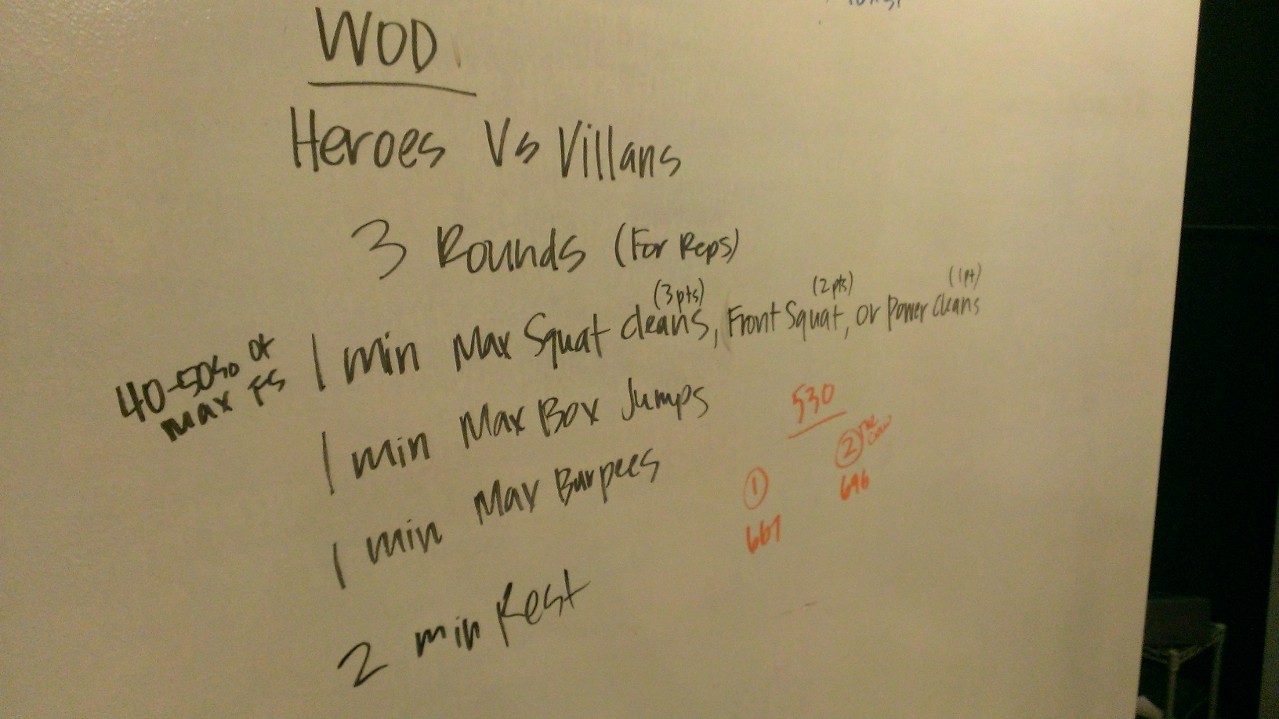 WOD
Heroes Vs Villans
3 Rounds (For Reps)
40-50% of
max FS
1 min Max Squat Cleans, Front Squat, or Power Cleans
(3pts) (2pts) (1pt)
1 min Max Box Jumps
1 min Max Burpees
2 min Rest
530
1
667
2 THE CREW
696